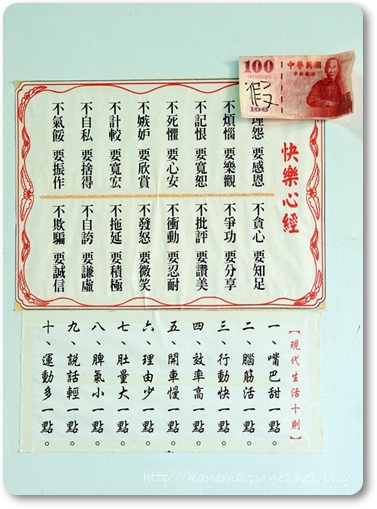 100
中華民國
中央銀行
假
100
快樂心經
埋怨 要感恩
不煩惱 要樂觀
不記恨 要寬恕
不死懼 要心安
不嫉妒 要欣賞
不計較 要寬宏
不自私 要捨得
不氣餒 要振作
不貪心 要知足
不爭功 要分享
不批評 要讚美
不衝動 要忍耐
不發怒 要微笑
不拖延 要積極
不自誇 要謙虛
不欺騙 要誠信
【現代生活十則】
一、嘴巴甜一點。
二、腦筋活一點。
三、行動快一點。
四、效率高一點。
五、開車慢一點。
六、理由少一點。
七、肚量大一點。
八、脾氣小一點。
九、說話輕一點。
十、運動多一點。
http://kanema.pixnet.net/blog